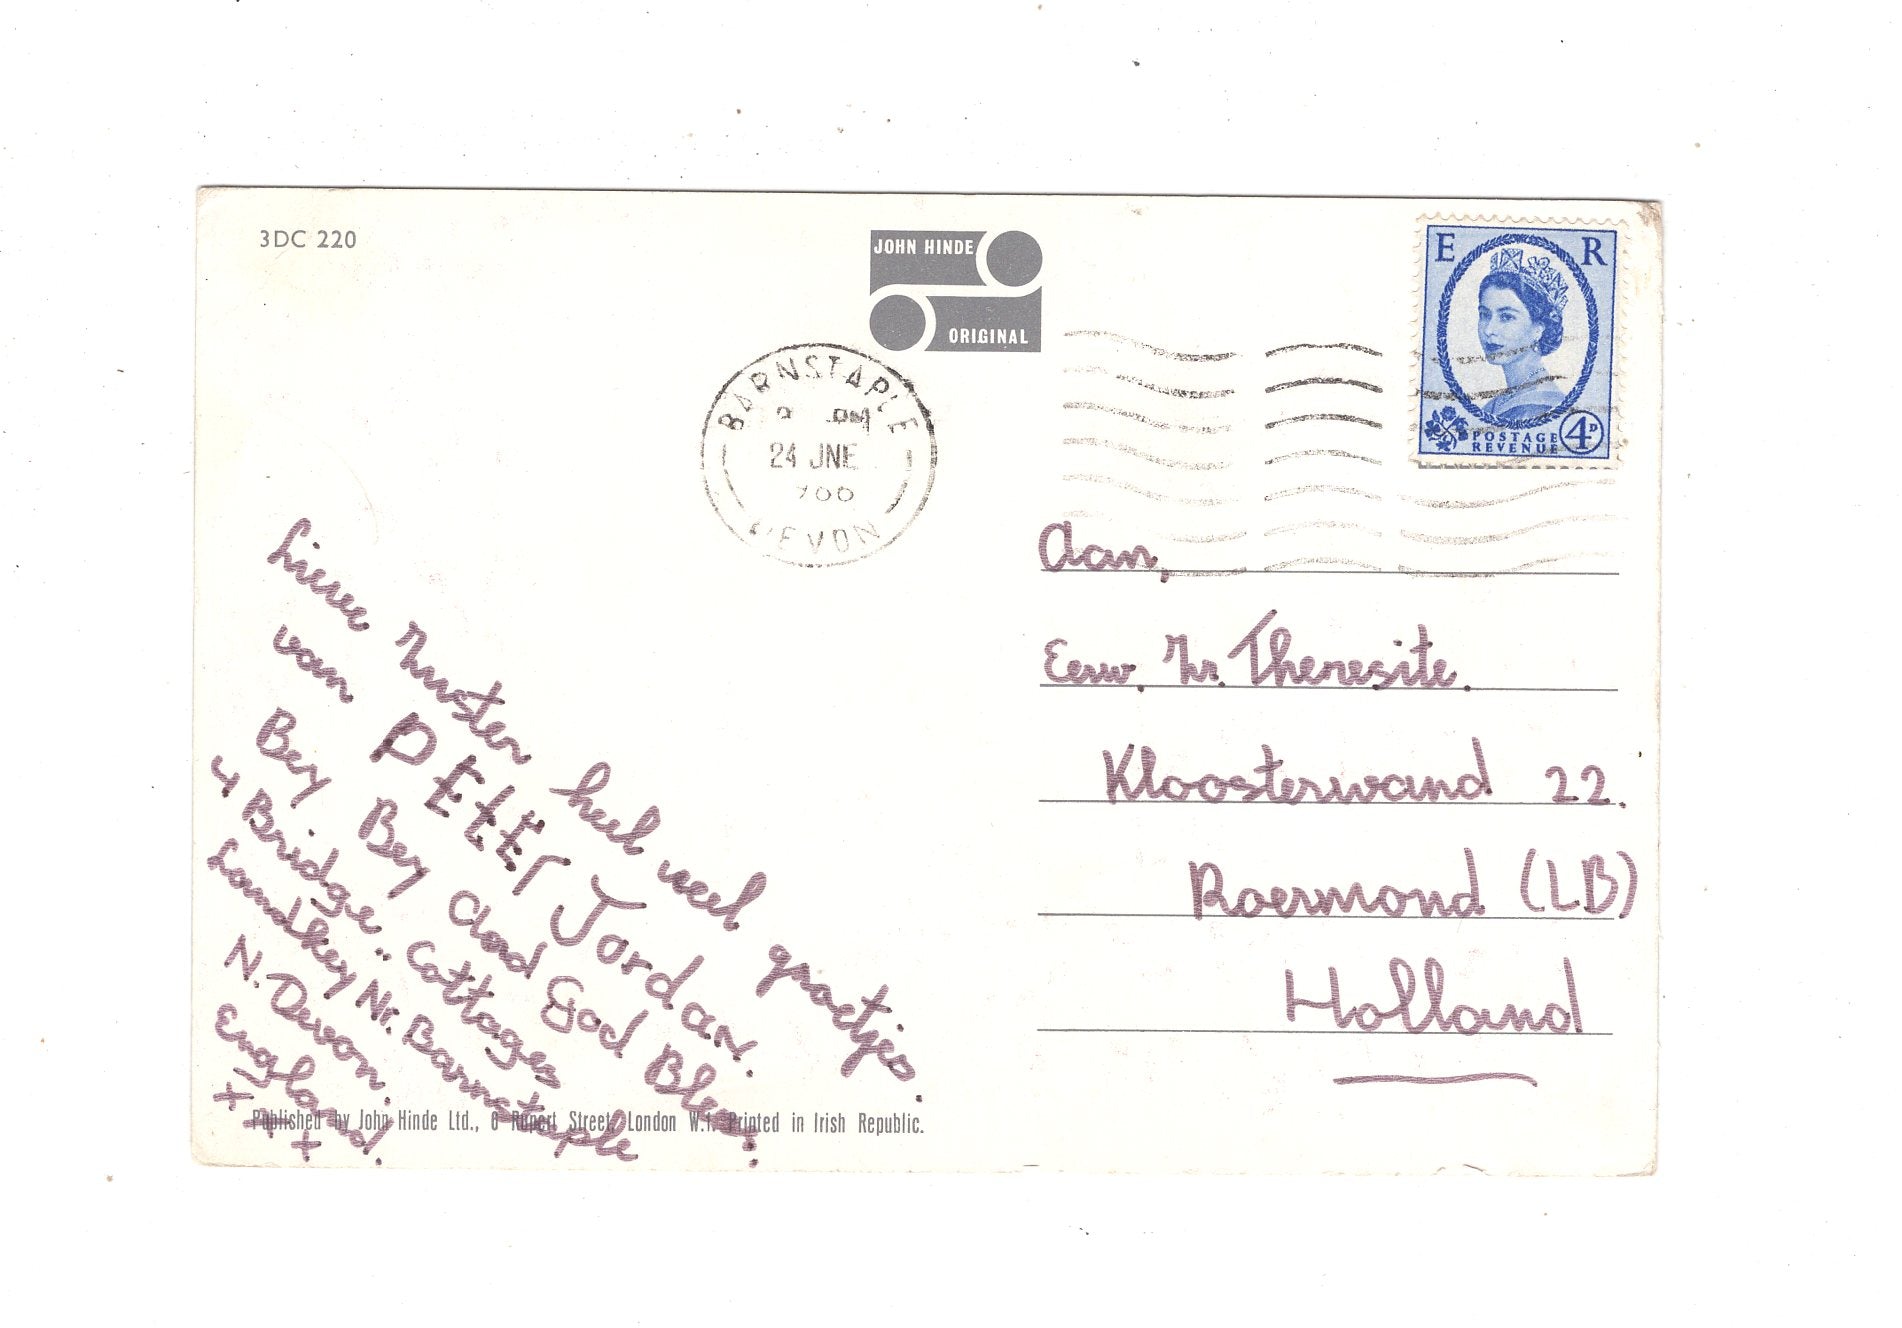 3DC 220
JOHN HINDE
ORIGINAL
E R
POSTAGE
REVENUE
4D
BARNSTAPLE
PM
24 JNE
DEVON
Lieve Zuster heel veel groetjes.
van PETER Jordan.
Bey Bey And God Bless.
4 Bridge.. Cottages
Landkey Nr. Barnstaple
N. Devon.
England.
x x x
Aan,
Eerw. Zr. Theresite.
Kloosterwand 22.
Roermond (LB)
Holland
Published by John Hinde Ltd., 6 Rupert Street, London W.1. Printed in Irish Republic.